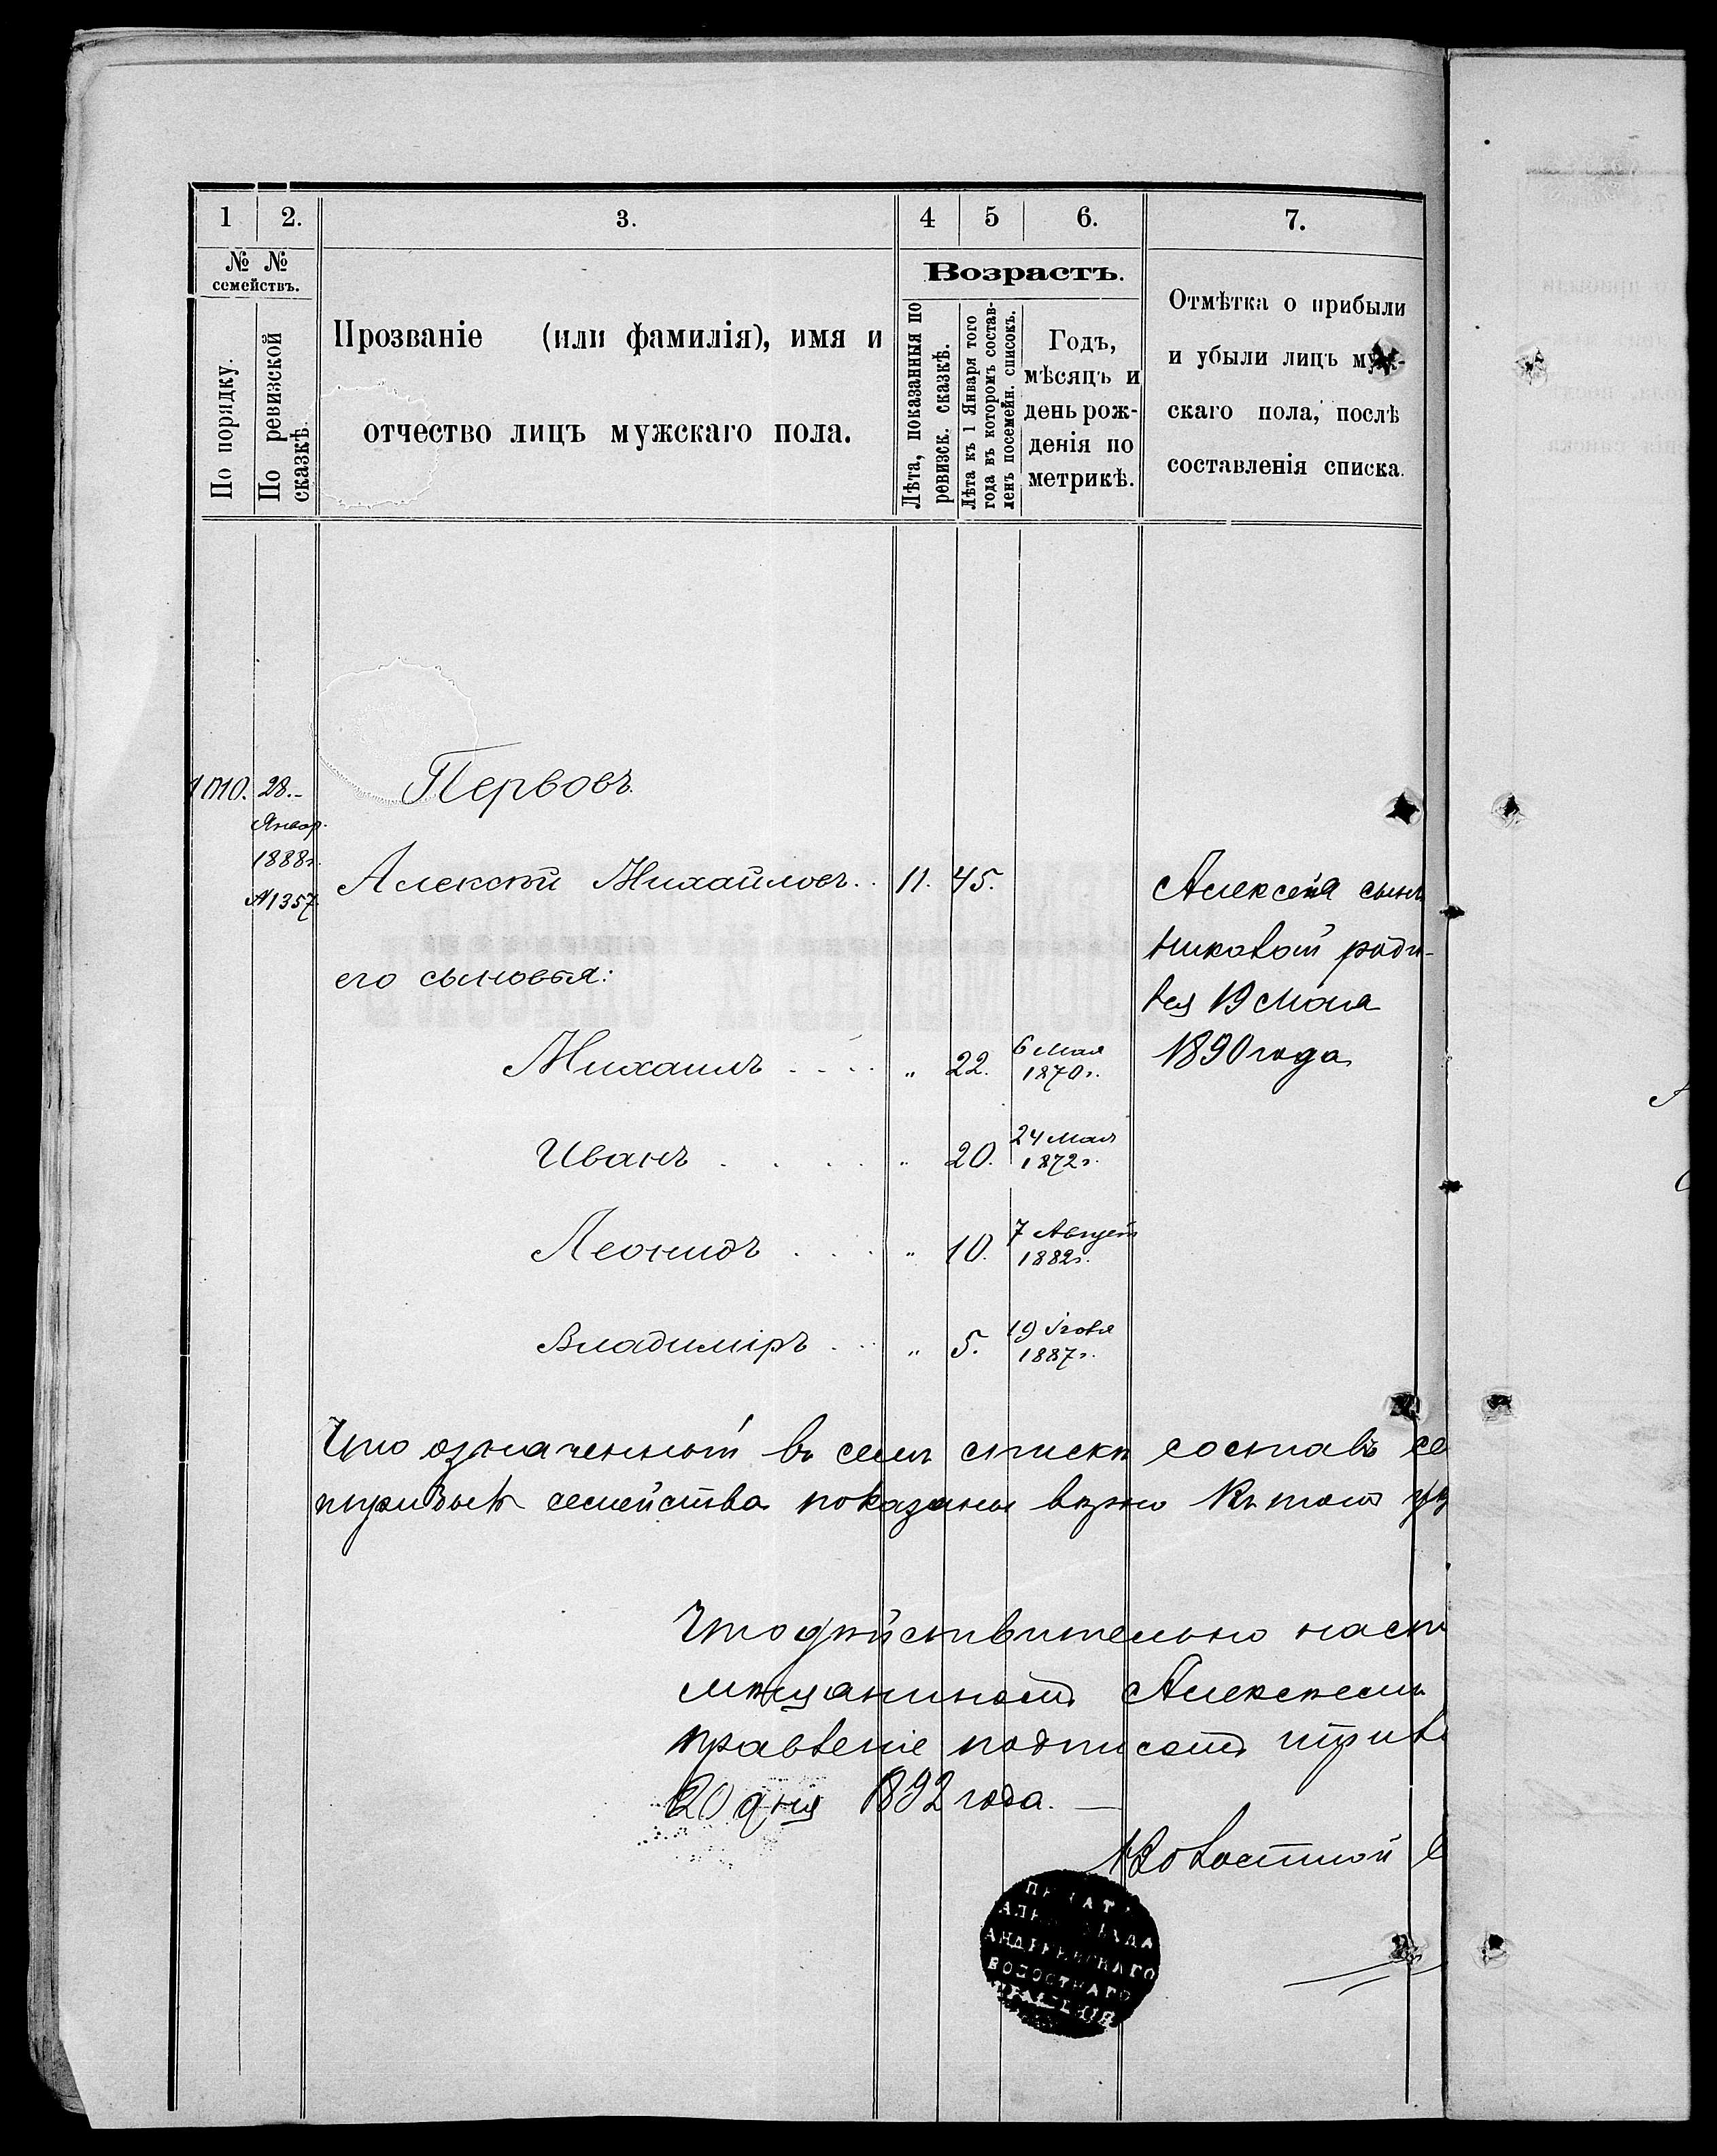 1 2. 3. 4 5 6. 7.
№ №
семействъ.
По порядку.
По ревизской
сказкѣ.
Прозваніе (или фамилія), имя и
отчество лицъ мужскаго пола.
Возрастъ.
Лѣта, показанныя по
ревизск. сказкѣ.
Лѣта къ 1 Января того
года въ которомъ состав-
ленъ посемейн. списокъ.
Годъ,
мѣсяцъ и
день рож-
денія по
метрикѣ.
Отмѣтка о прибыли
и убыли лицъ муж-
скаго пола, послѣ
составленія списка.
1010. 28.-
Январ.
1888г.
№1357
Первовъ.
Алексѣй Михайловъ.. 11. 45.
его сыновья:
Михаилъ - - - - „ 22. 6 Мая
1870г.
Иванъ . . . . „ 20. 24 Мая
1872г.
Леонидъ . . . „ 10. 7 Август
1882г.
Владиміръ . . . „ 5. 19 Іюля
1887г.
Алексѣя сынъ
роди-
лся 19 Мая
1890 года
Что означенный въ семъ спискѣ составъ се
семейства показаны вѣрно къ тому
Что дѣйствительно
мѣщаниномъ Алексѣемъ
правленіе подписомъ
20 дня 1892 года. —
Волостной
ПЕЧАТЬ
УѢЗДА
АНДРЕЕВСКАГО
ВОЛОСТНАГО
ПРАВЛЕНІЯ